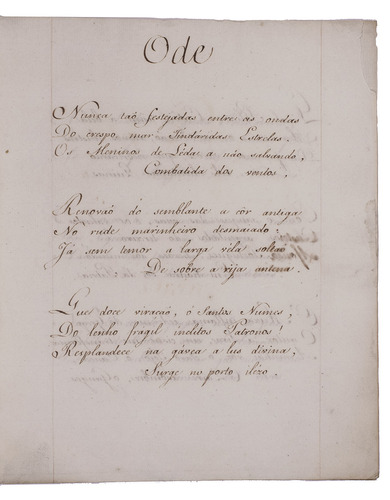 Ode
Nunca tão festejadas entre as ondas
Do crespo mar Tindáridas Estrelas,
Os Meninos de Léda a náo salvando,
Combatida dos ventos,
Renovão do semblante a côr antiga
No rude marinheiro desmaiado:
Já sem temor a larga vela soltão
De sobre a rija antena.
Que doce viração, ó Santos Numes,
Do lenho fragil inclitos Patronos!
Resplandece na gávea a lus divina,
Surge no porto ilezo.